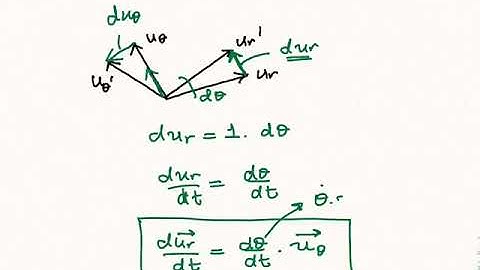 duθ
uθ ur' dur
uθ' ur
dθ
dur = 1. dθ
dur/dt = dθ/dt
θ̇.r
dur⃗/dt = dθ/dt · uθ⃗